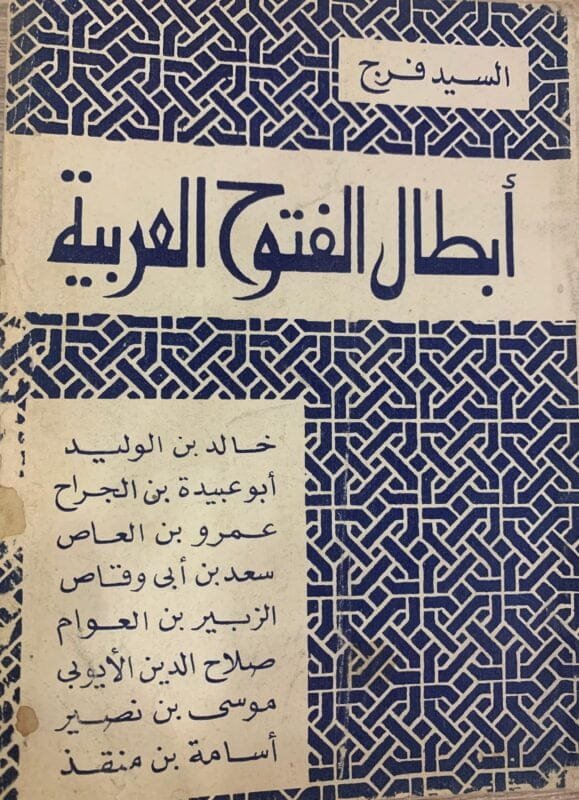 السيد فرج
أبطال الفتوح العربية
خالد بن الوليد
أبو عبيدة بن الجراح
عمرو بن العاص
سعد بن أبى وقاص
الزبير بن العوام
صلاح الدين الأيوبى
موسى بن نصير
أسامة بن منقذ